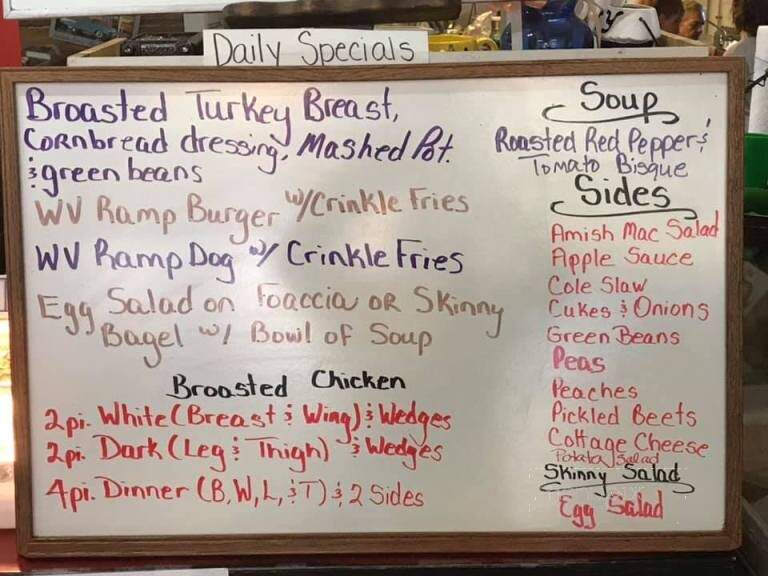 Daily Specials
Broasted Turkey Breast,
Cornbread dressing, Mashed Pot.
& green beans
WV Ramp Burger w/Crinkle Fries
WV Ramp Dog w/ Crinkle Fries
Egg Salad on Foaccia OR Skinny
Bagel w/ Bowl of Soup
Broasted Chicken
2pi. White (Breast & Wing) & Wedges
2pi. Dark (Leg & Thigh) & Wedges
4pi. Dinner (B, W, L, & T) & 2 Sides
Soup
Roasted Red Pepper &
Tomato Bisque
Sides
Amish Mac Salad
Apple Sauce
Cole Slaw
Cukes & Onions
Green Beans
Peas
Peaches
Pickled Beets
Cottage Cheese
Potato Salad
Skinny Salad
Egg Salad